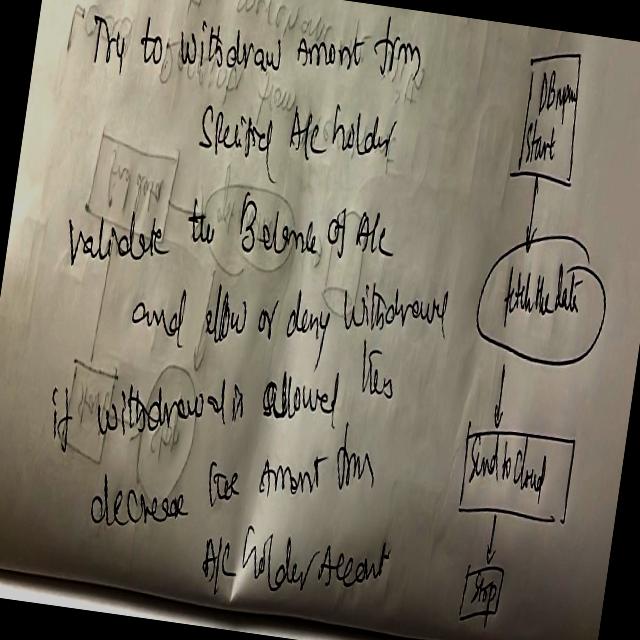 Try to withdraw Amont frm
Specified A/c holder
validate the Balance of A/c
and allow or deny withdrawal
if withdrawal is allowed then
decrease the Amont frm
A/c holder Accont
DB
Start
fetch the data
Send to cloud
Stop